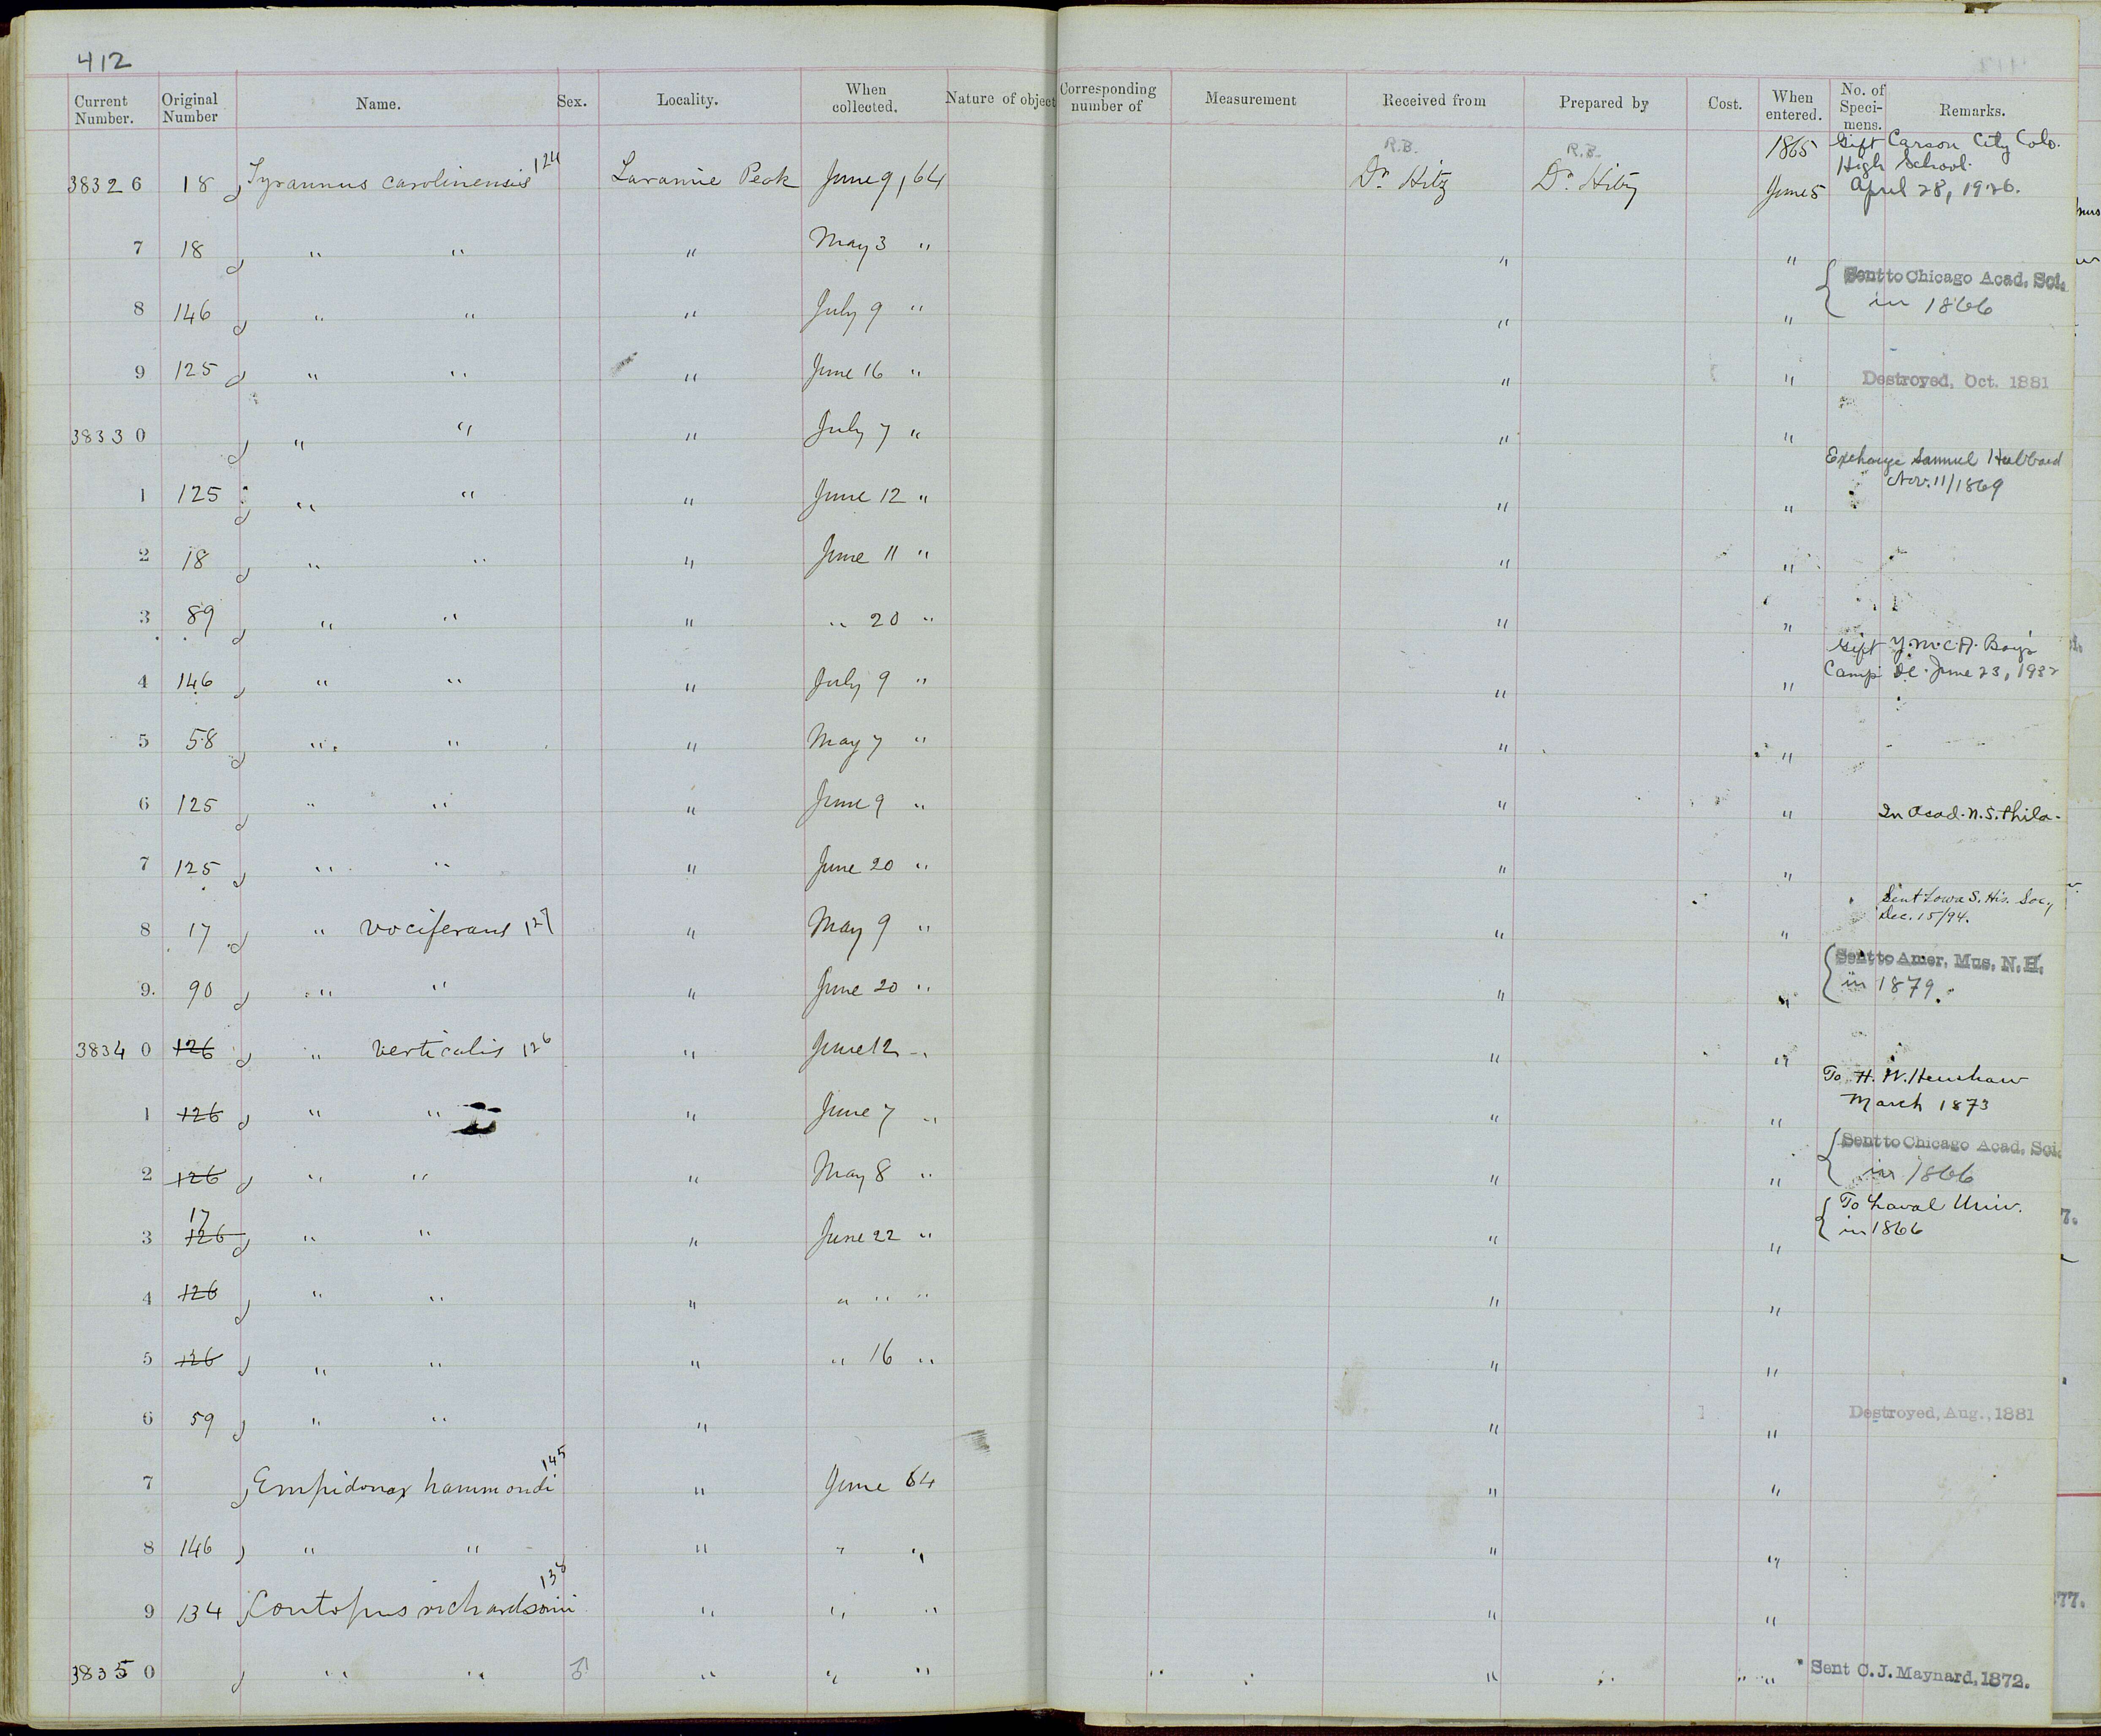 412
Current Number. Original Number Name. Sex. Locality. When collected. Nature of object Corresponding number of Measurement Received from Prepared by Cost. When entered. No. of Speci-mens. Remarks.
38326 18 Tyrannus carolinensis 124 Laramie Peak June 9, 64 R.B. Dr Hitz R.B. Dr Hitz 1865 June 5 Gift Carson City Colo. High School. April 28, 1926.
7 18 " " " May 3 " " "
8 146 " " " July 9 " " " { Sent to Chicago Acad. Sci. in 1866
9 125 " " " June 16 " " " Destroyed, Oct. 1881
38330 " " " July 7 " " "
1 125 " " " June 12 " " " Exchange Samuel Hubbard Nov. 11/1869
2 18 " " " June 11 " " "
3 89 " " " " 20 " " "
4 146 " " " July 9 " " " Gift Y.M.C.A. Boys Camp DC. June 23, 1932
5 58 " " " May 7 " " "
6 125 " " " June 9 " " " In Acad. N.S. Phila.
7 125 " " " June 20 " " "
8 17 " vociferans 127 " May 9 " " " Sent Iowa S. His. Socy Dec. 15/94.
9. 90 " " " June 20 " " " { Sent to Amer. Mus. N.H. in 1879.
38340 126 " verticalis 126 " June 12 " " "
1 126 " " " June 7 " " " To H. W. Henshaw March 1873
2 126 " " " May 8 " " " { Sent to Chicago Acad. Sci. in 1866
3 17 126 " " " June 22 " " " { To Laval Univ. in 1866
4 126 " " " " " " " "
5 126 " " " " 16 " " "
6 59 " " " " " Destroyed, Aug., 1881
7 Empidonax hammondi 145 " June 64 " "
8 146 " " " " " " "
9 134 Contopus richardsonii 138 " " " " "
38350 " " ♂ " " " " " " " " Sent C. J. Maynard, 1872.